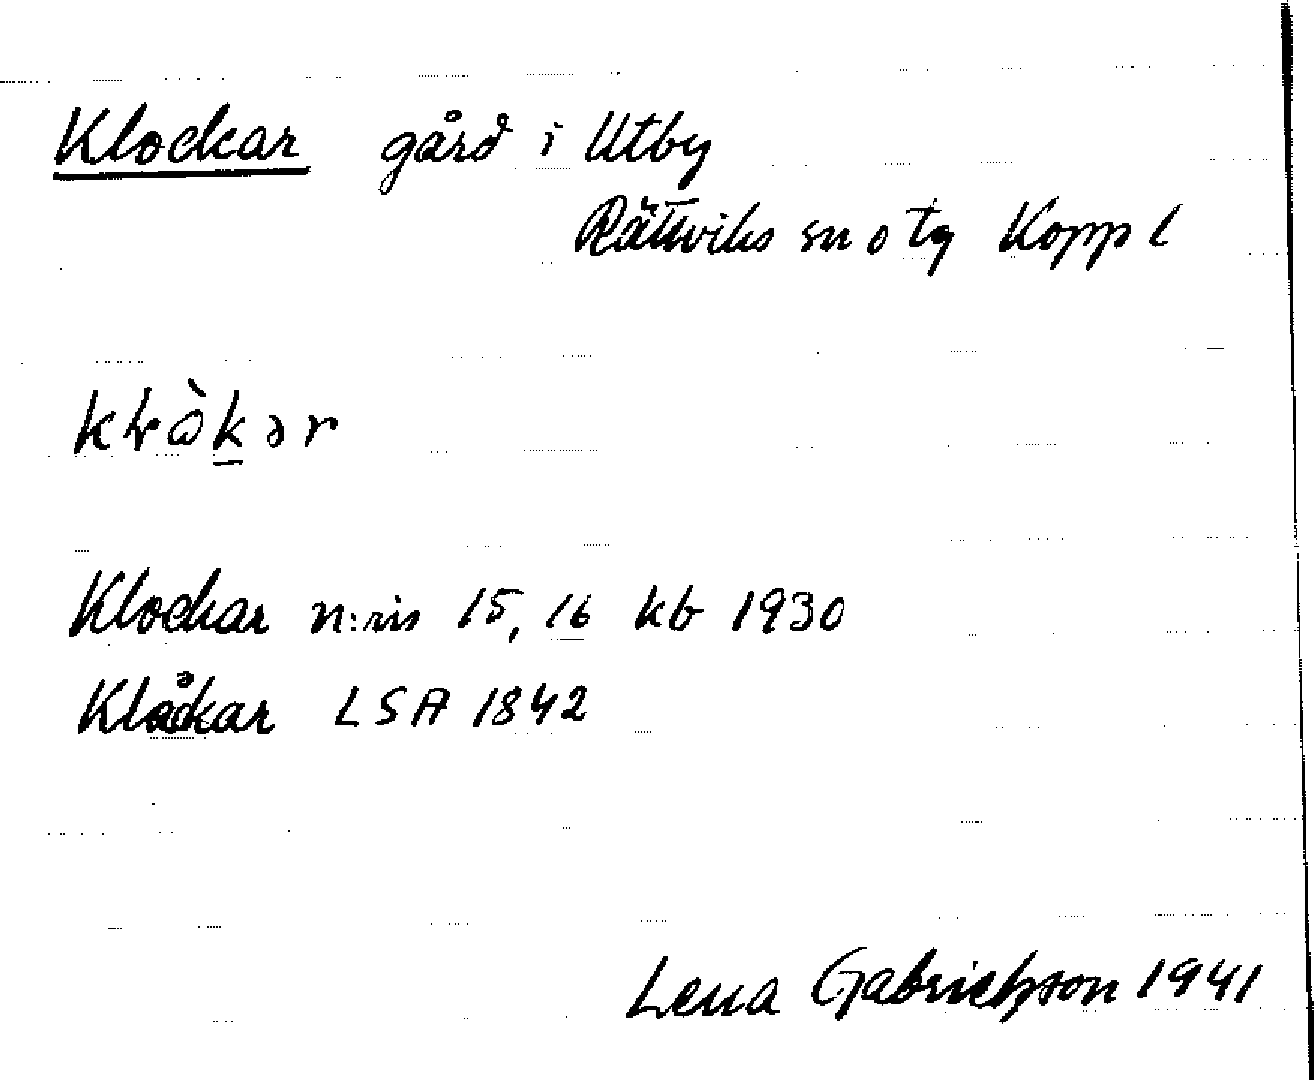 Klockar gård i Utby
Rättviks sn o tg Kopp l
Klockar n:ris 15, 16 kb 1930
Klåckar LSA 1842
Lena Gabrielsson 1941